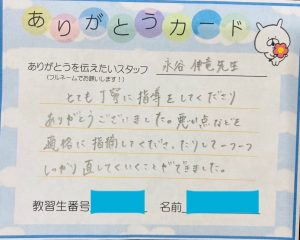 ありがとうカード
ありがとうを伝えたいスタッフ
(フルネームでお願いします！)
水谷 伸竜先生
とても丁寧に指導をしてくださり
ありがとうございました。悪い点などを
適格に指摘してくださったりして一つ一つ
しっかり直していくことができました。
教習生番号 名前